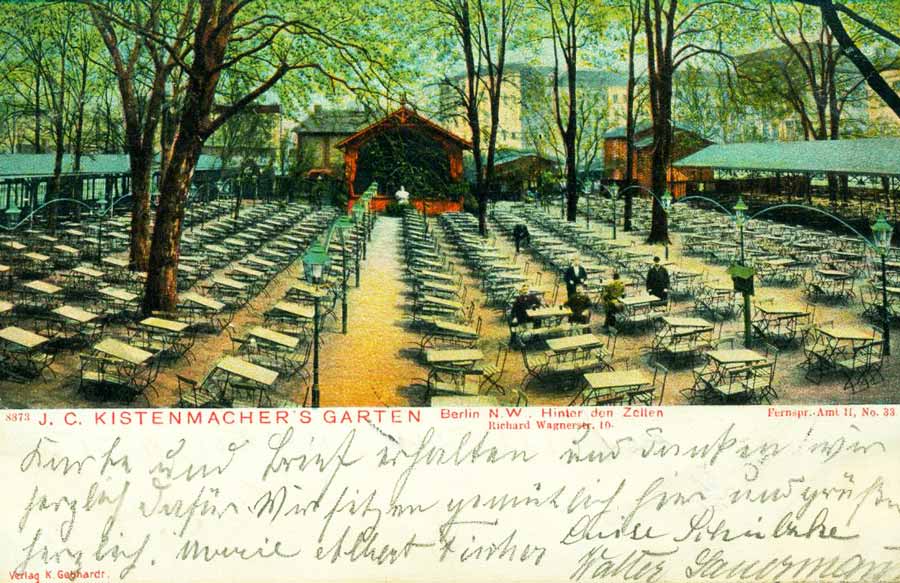 8373 J. C. KISTENMACHER'S GARTEN Berlin N.W. Hinter den Zelten Fernspr.-Amt II, No. 33
Richard Wagnerstr. 10.
Karte und Brief erhalten und danken wir
herzlich dafür. Wir sitzen gemütlich hier und grüßen
herzlich. Marie Albert Fischer Luise
Walter
Verlag K. Gebhardt.